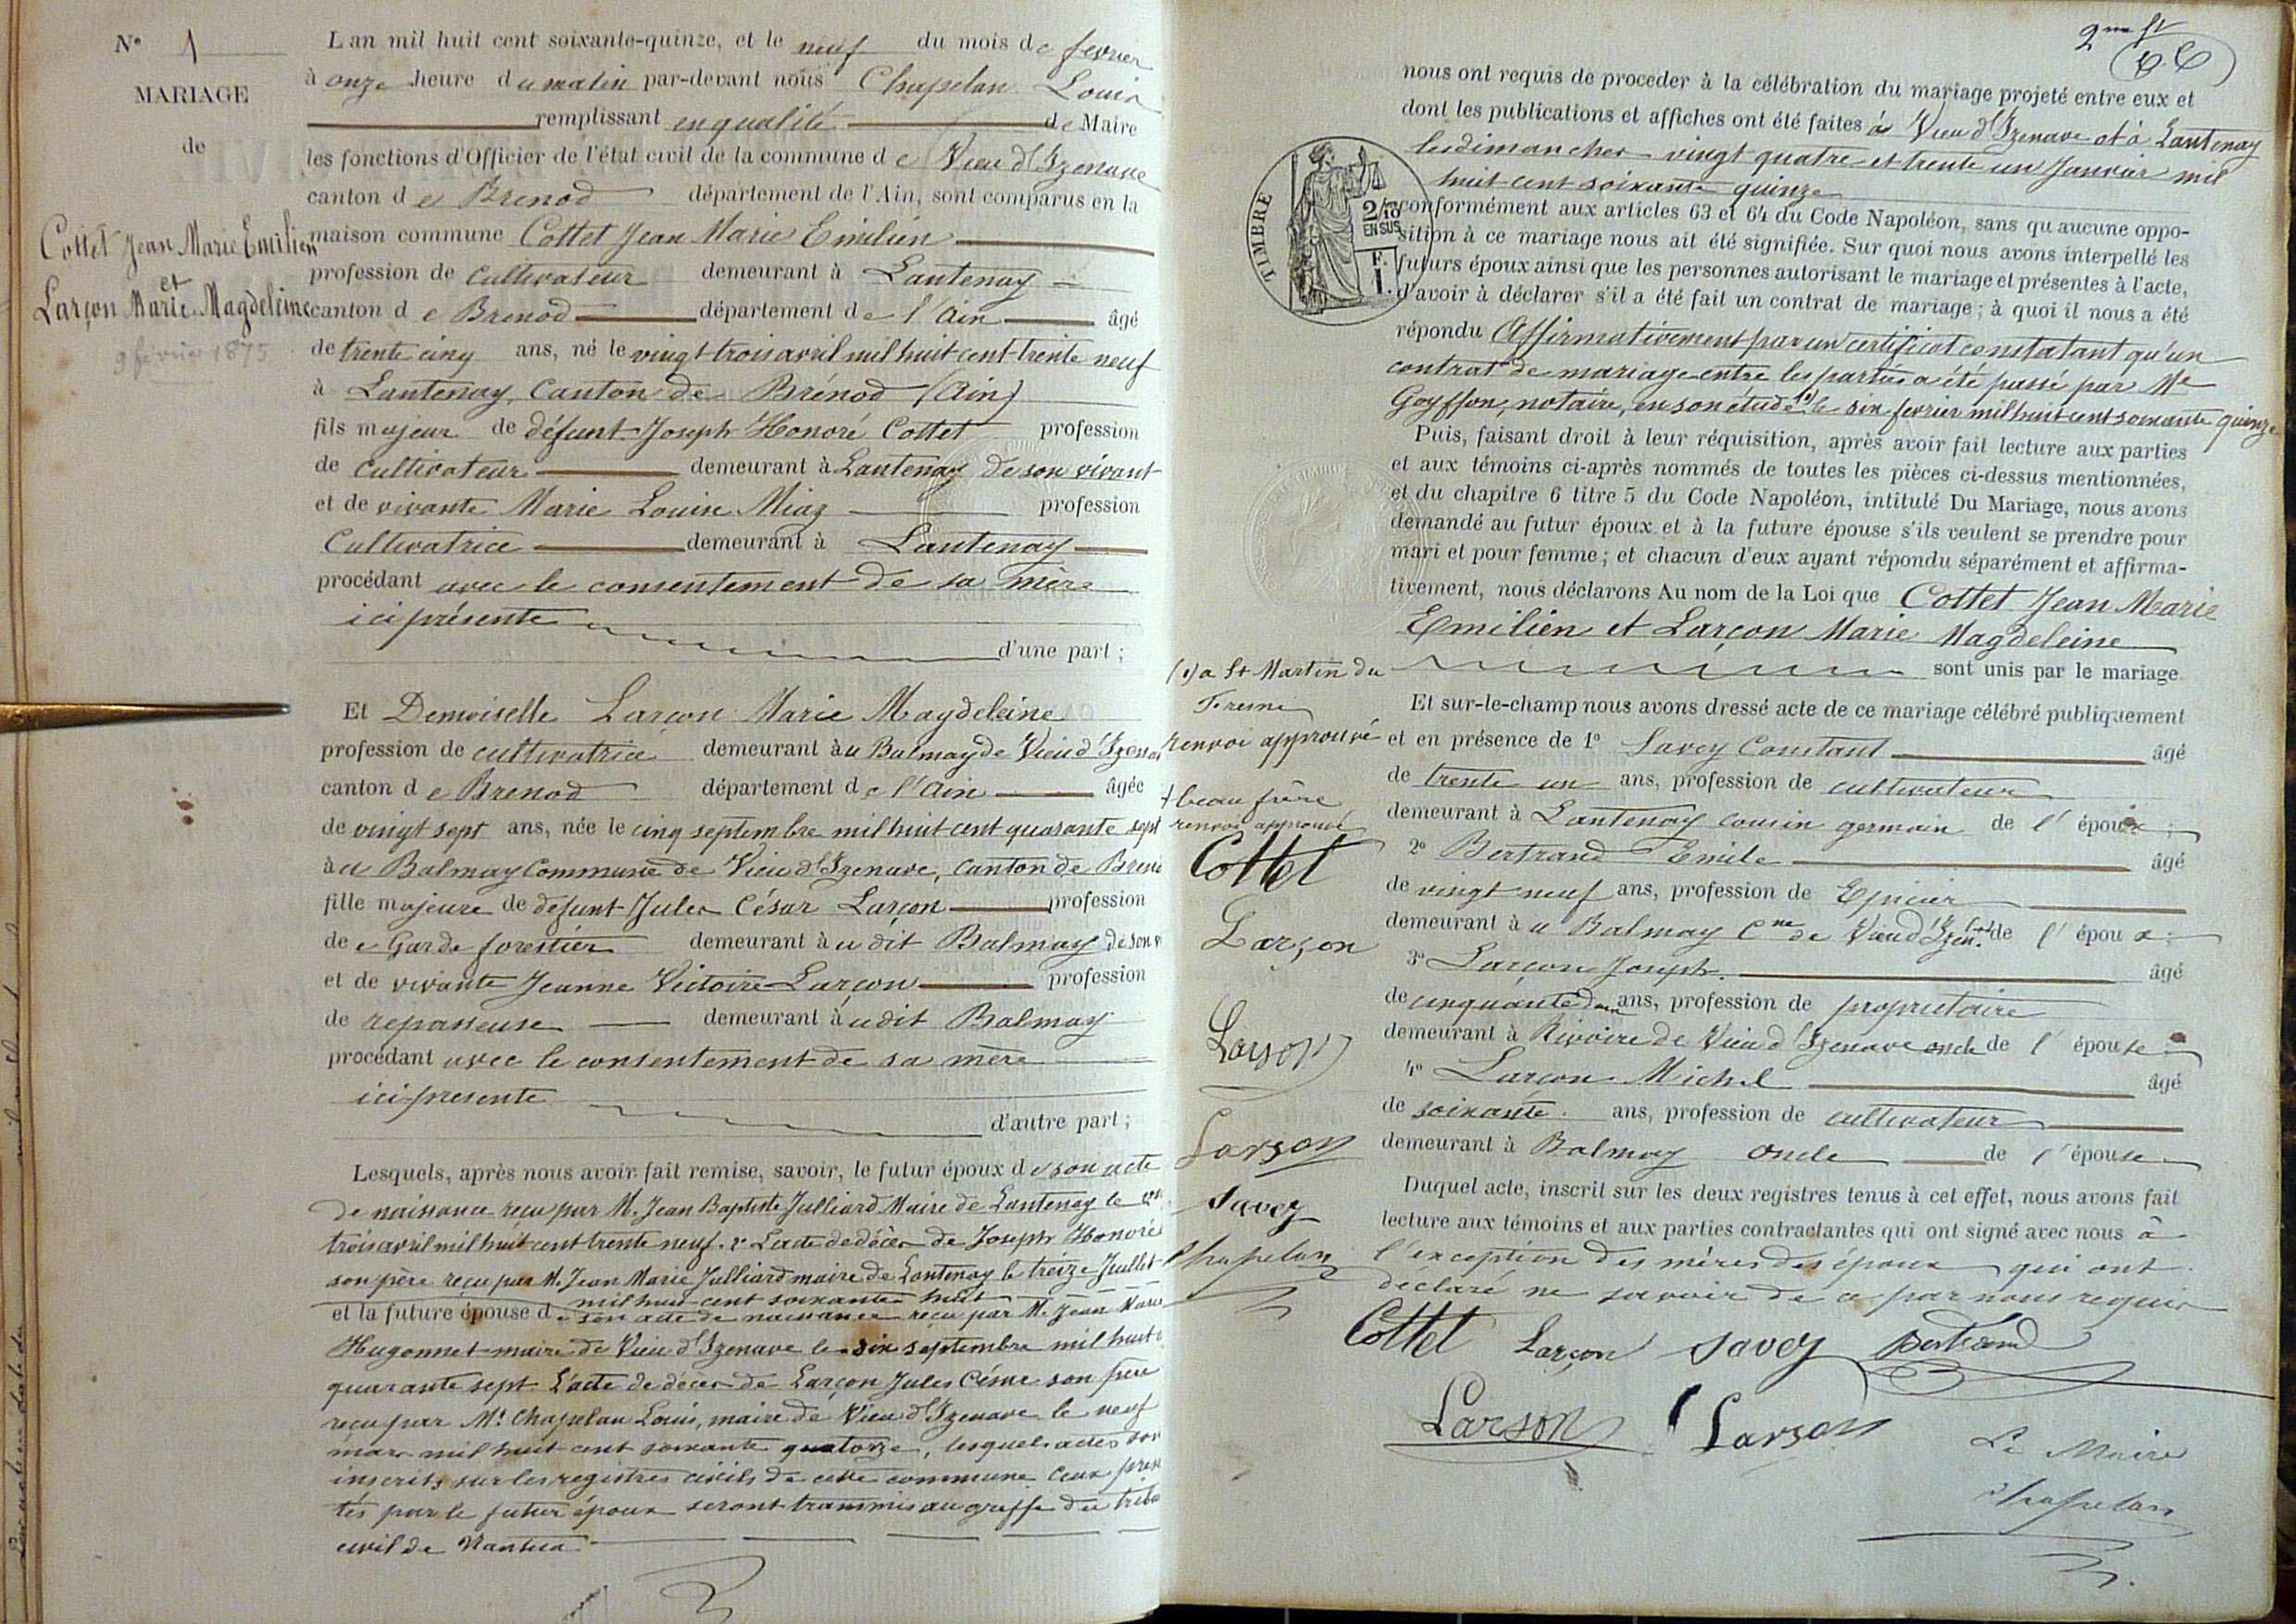 N° 1
MARIAGE
de
Cottet Jean Marie Emilien
et
Larçon Marie Magdeleine
9 février 1875
L'an mil huit cent soixante-quinze, et le neuf du mois de fevrier
à onze heure du matin par-devant nous Chapelan Louis
remplissant en qualité de Maire
les fonctions d'Officier de l'état civil de la commune de Vieu d'Izenave
canton de Brenod département de l'Ain, sont comparus en la
maison commune Cottet Jean Marie Emilien
profession de Cultivateur demeurant à Lantenay
canton de Brenod département de l'Ain âgé
de trente cinq ans, né le vingt trois avril mil huit cent trente neuf
à Lantenay, Canton de Brénod (Ain)
fils majeur de défunt Joseph Honoré Cottet profession
de cultivateur demeurant à Lantenay de son vivant
et de vivante Marie Louise Miaz profession
Cultivatrice demeurant à Lantenay
procédant avec le consentement de sa mère
ici présente
d'une part ;
Et Demoiselle Larçon Marie Magdeleine
profession de cultivatrice demeurant à u Balmay de Vieu d'Izena
canton de Brenod département de l'Ain âgée
de vingt sept ans, née le cinq septembre mil huit cent quarante sept
à u Balmay Commune de Vieu d'Izenave, Canton de Breno
fille majeure de defunt Jules César Larçon profession
de e Garde forestier demeurant à u dit Balmay de son v
et de vivante Jeanne Victoire Larçon profession
de repasseuse demeurant à u dit Balmay
procédant avec le consentement de sa mère
ici présente
d'autre part ;
Lesquels, après nous avoir fait remise, savoir, le futur époux de son acte
de naissance reçu par M. Jean Baptiste Julliard Maire de Lantenay le vin
trois avril mil huit cent trente neuf. 2° L'acte de décès de Joseph Honoré
son père reçu par M. Jean Marie Julliard maire de Lantenay le treize Juillet
mil huit cent soixante huit
et la future épouse de son acte de naissance reçu par M. Jean Marie
Hugonnet maire de Vieu d'Izenave le six septembre mil huit c
quarante sept. L'acte de décès de Larçon Jules César son père
reçu par Mr Chapelan Louis, maire de Vieu d'Izenave le neuf
mars mil huit cent soixante quatorze, lesquels actes son
inscrits sur les registres civils de cette commune. Ceux prese
tés par le futur époux seront transmis au greffe du tribu
civil de Nantua
2me ft
nous ont requis de procéder à la célébration du mariage projeté entre eux et
dont les publications et affiches ont été faites à Vieu d'Izenave et à Lantenay
les dimanches vingt quatre et trente un Janvier mil
huit cent soixante quinze
TIMBRE
2/10
EN SUS
F.
1.
conformément aux articles 63 et 64 du Code Napoléon, sans qu'aucune oppo-
sition à ce mariage nous ait été signifiée. Sur quoi nous avons interpellé les
futurs époux ainsi que les personnes autorisant le mariage et présentes à l'acte,
d'avoir à déclarer s'il a été fait un contrat de mariage ; à quoi il nous a été
répondu Affirmativement par un certificat constatant qu'un
contrat de mariage entre les parties a été passé par Me
Goyffon, notaire, en son étude (1) le six fevrier mil huit cent soixante quinze
Puis, faisant droit à leur réquisition, après avoir fait lecture aux parties
et aux témoins ci-après nommés de toutes les pièces ci-dessus mentionnées,
et du chapitre 6 titre 5 du Code Napoléon, intitulé Du Mariage, nous avons
demandé au futur époux et à la future épouse s'ils veulent se prendre pour
mari et pour femme ; et chacun d'eux ayant répondu séparément et affirma-
tivement, nous déclarons Au nom de la Loi que Cottet Jean Marie
Emilien et Larçon Marie Magdeleine
sont unis par le mariage.
(1) a St Martin du
Fresne
renvoi approuvé
+ beau frère
renvoi approuvé
Cottet
Larçon
Larson
Larson
Savey
Chapelan
Et sur-le-champ nous avons dressé acte de ce mariage célébré publiquement
et en présence de 1° Savey Constant âgé
de trente un ans, profession de cultivateur
demeurant à Lantenay cousin germain de l'époux ;
2° Bertrand Emile âgé
de vingt neuf ans, profession de Epicier
demeurant à u Balmay Cne de Vieu d'Izen. + de l'époux ;
3° Larçon Joseph âgé
de cinquante deux ans, profession de proprietaire
demeurant à Rivoire de Vieu d'Izenave oncle de l'épouse
4° Larçon Michel âgé
de soixante ans, profession de cultivateur
demeurant à Balmay oncle de l'épouse
Duquel acte, inscrit sur les deux registres tenus à cet effet, nous avons fait
lecture aux témoins et aux parties contractantes qui ont signé avec nous à
l'exception des mères des époux qui ont
déclaré ne savoir de ce par nous requis
Cottet Larçon Savey Bertrand
Larson Larson
Le Maire
Chapelan